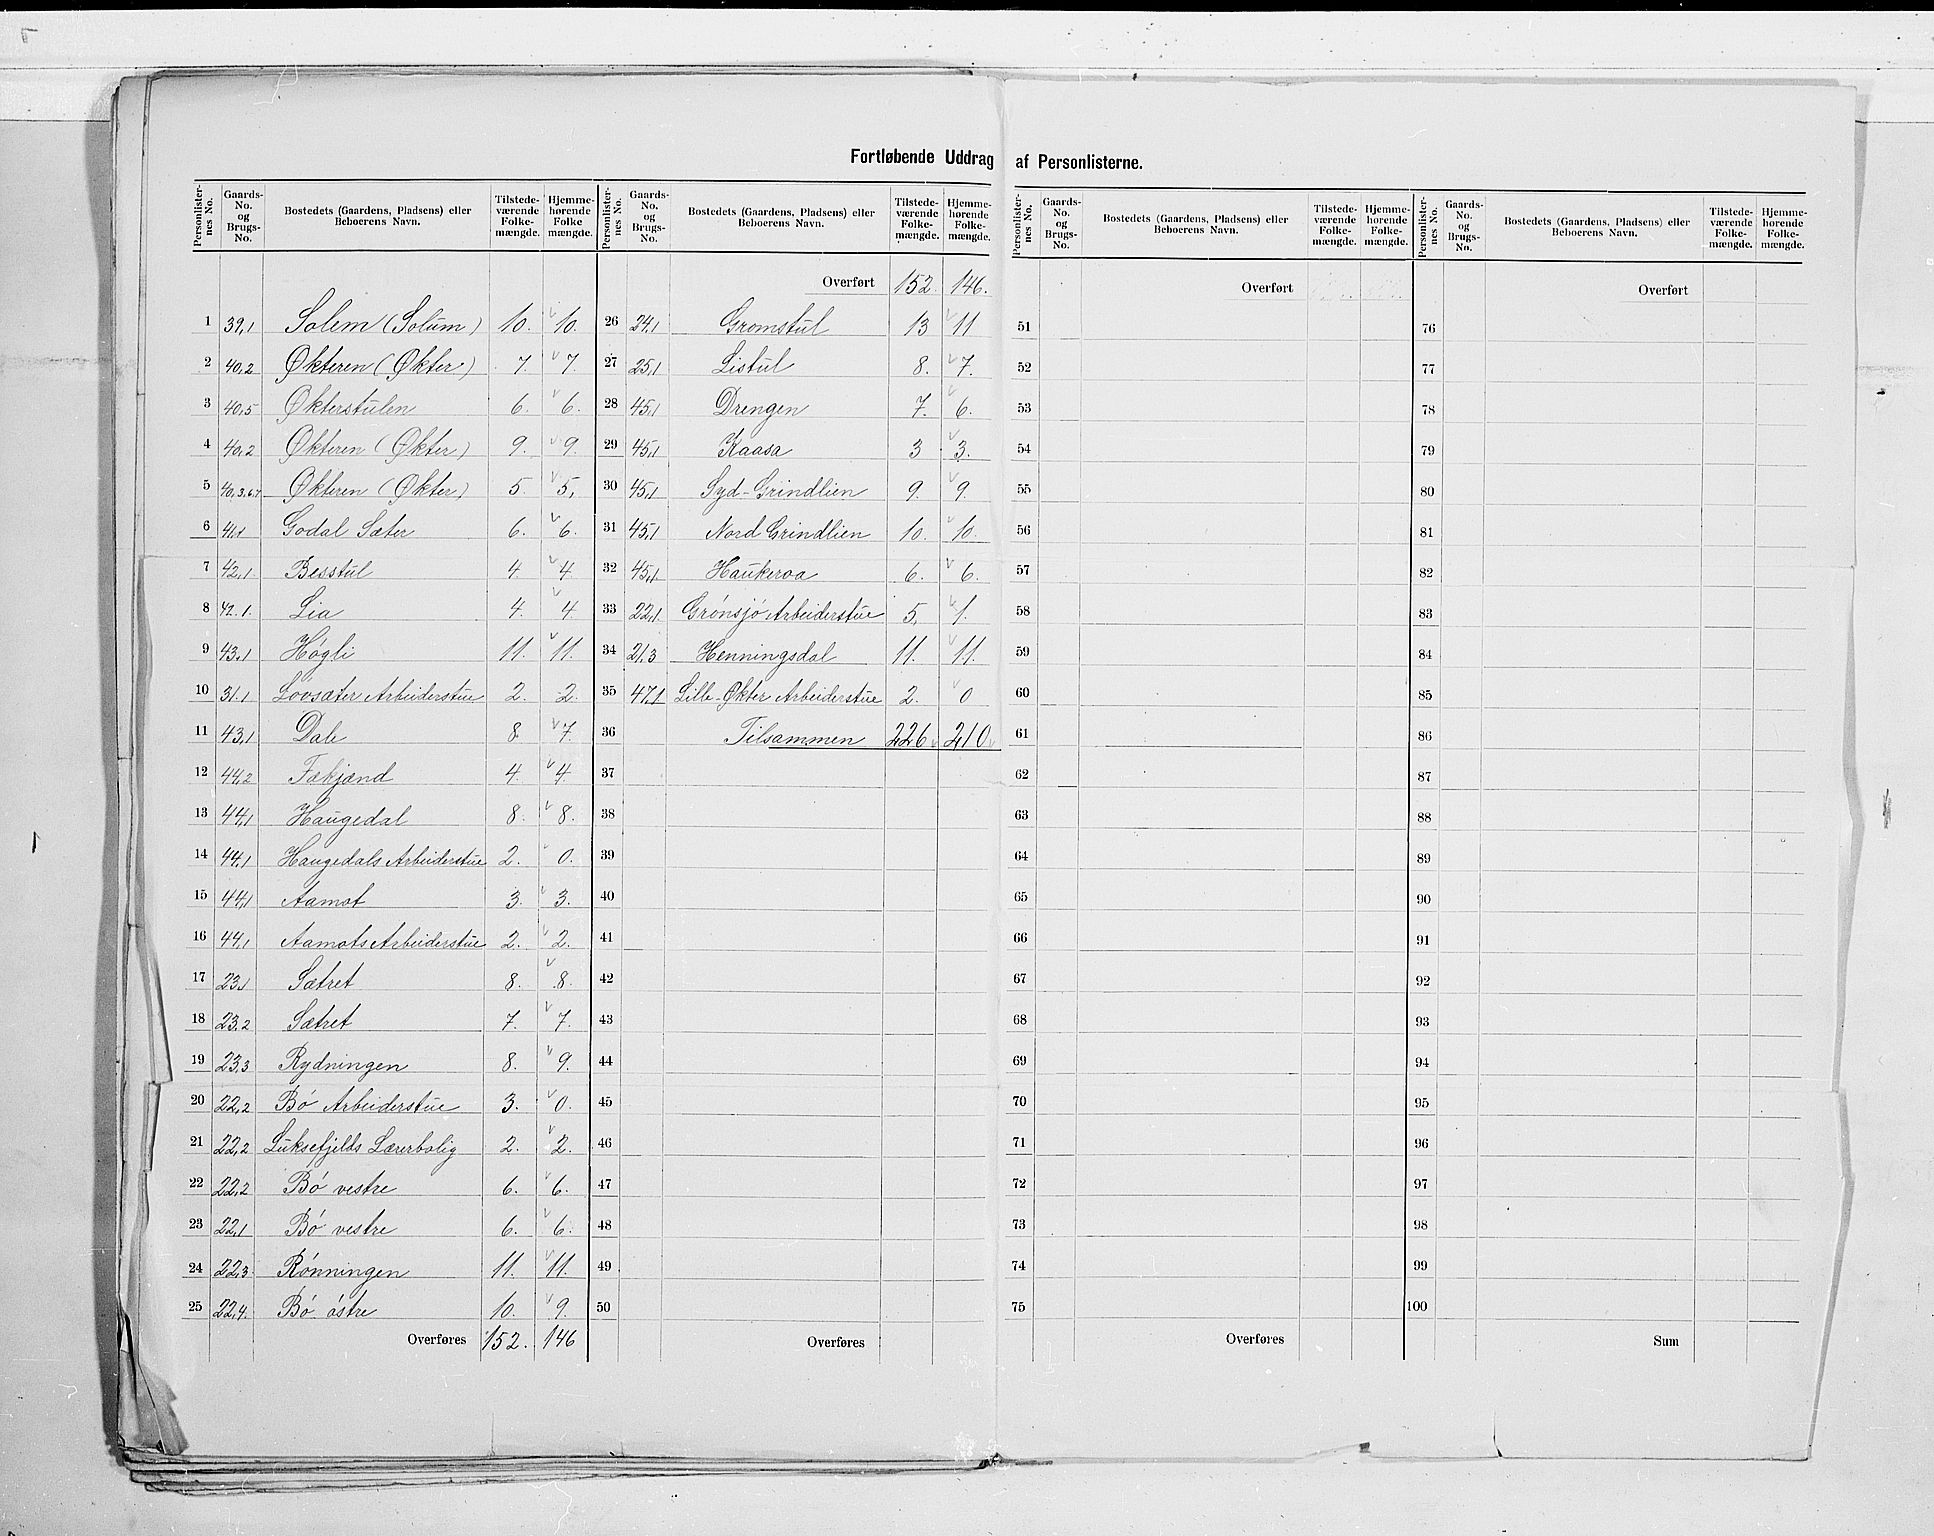 Fortløbende Uddrag af Personlisterne.
Personlister-nes No. | Gaards-No. og Brugs-No. | Bostedets (Gaardens, Pladsens) eller Beboerens Navn. | Tilstede-værende Folke-mængde. | Hjemme-hørende Folke mængde.
1 39,1 Solem (Solum) 10. 10.
2 40,2 Økteren (Økter) 7. 7.
3 40,5 Økterstulen 6. 6.
4 40,2 Økteren (Økter) 9. 9.
5 40,3.6.7 Økteren (Økter) 5. 5,
6 41,1 Godal Sæter 6. 6.
7 42,1. Besstul 4. 4.
8 42.1. Lia 4. 4.
9 43,1 Høgli 11. 11.
10 31.1 Lovsæter Arbeiderstue 2. 2.
11 43,1 Dale 8. 7.
12 44,2 Fækjænd 4. 4.
13 44,1 Haugedal 8. 8.
14 44,1 Haugedals Arbeiderstue 2. 0.
15 44,1 Aamot 3. 3.
16 44,1 Aamots Arbeiderstue 2. 2.
17 23,1 Sætret 8. 8.
18 23,2 Sætret 7. 7.
19 23,3 Rydningen 8. 9.
20 22,2 Bó Arbeiderstue 3. 0.
21 22,2 Luksefjelds Lærerbolig 2. 2.
22 22,2 Bó vestre 6. 6.
23 22,1 Bó vestre 6. 6.
24 22,3 Rónningen 11. 11.
25 22,4. Bó óstre 10. 9.
Overføres 152. 146
Personlister-nes No. | Gaards-No. og Brugs-No. | Bostedets (Gaardens, Pladsens) eller Beboerens Navn. | Tilstede-værende Folke-mængde. | Hjemme-hørende Folke-mængde.
Overført 152. 146.
26 24,1 Gromstul 13 11
27 25,1 Listul 8. 7.
28 45,1 Drengen 7. 6.
29 45,1 Kaasa 3 3.
30 45,1 Syd-Grindlien 9. 9.
31 45,1 Nord Grindlien 10. 10.
32 45,1 Haukeroa 6. 6.
33 22,1. Grónsjó Arbeiderstue 5, 1.
34 21,3 Henningsdal 11. 11.
35 47,1. Lille-Økter Arbeiderstue 2. 0
36 Tilsammen 226 210
37
38
39
40
41
42
43
44
45
46
47
48
49
50
Overføres
Personlister-nes No. | Gaards-No. og Brugs-No. | Bostedets (Gaardens, Pladsens) eller Beboerens Navn. | Tilstede-værende Folke-mængde. | Hjemme-hørende Folke-mængde.
Overført
51
52
53
54
55
56
57
58
59
60
61
62
63
64
65
66
67
68
69
70
71
72
73
74
75
Overføres
Personlister-nes No. | Gaards-No. og Brugs-No. | Bostedets (Gaardens, Pladsens) eller Beboerens Navn. | Tilstede-værende Folke-mængde. | Hjemme-hørende Folke-mængde.
Overført
76
77
78
79
80
81
82
83
84
85
86
87
88
89
90
91
92
93
94
95
96
97
98
99
100
Sum